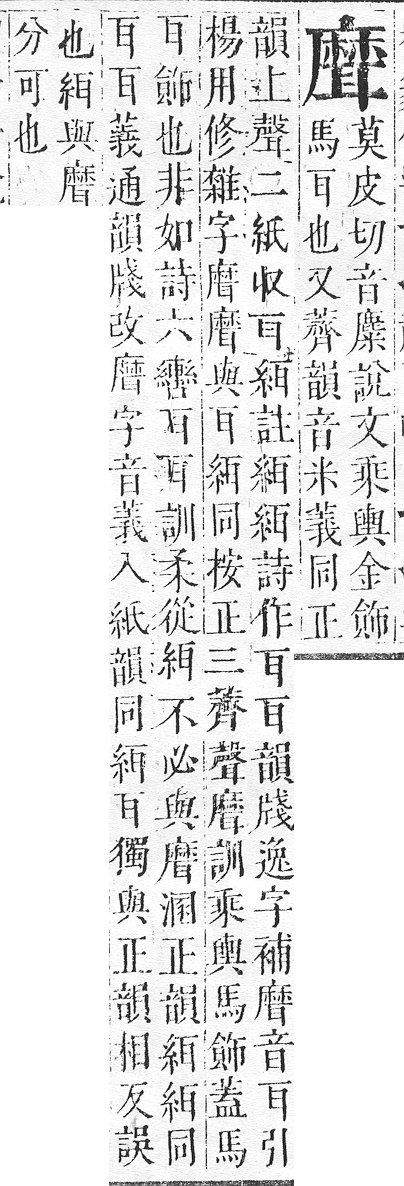 𦗕莫皮切音麋說文乘輿金飾
馬耳也又薺韻音米義同正
韻上聲二紙收耳䋙註䋙䋙詩作耳耳韻牋逸字補𦗕音耳引
楊用修雜字𦗕𦗕與耳䋙同按正三薺聲𦗕訓乘輿馬飾蓋馬
耳飾也非如詩六轡耳耳訓柔從䋙不必與𦗕溷正韻䋙䋙同
耳耳義通韻牋改𦗕字音義入紙韻同䋙耳獨與正韻相反誤
也䋙與𦗕
分可也